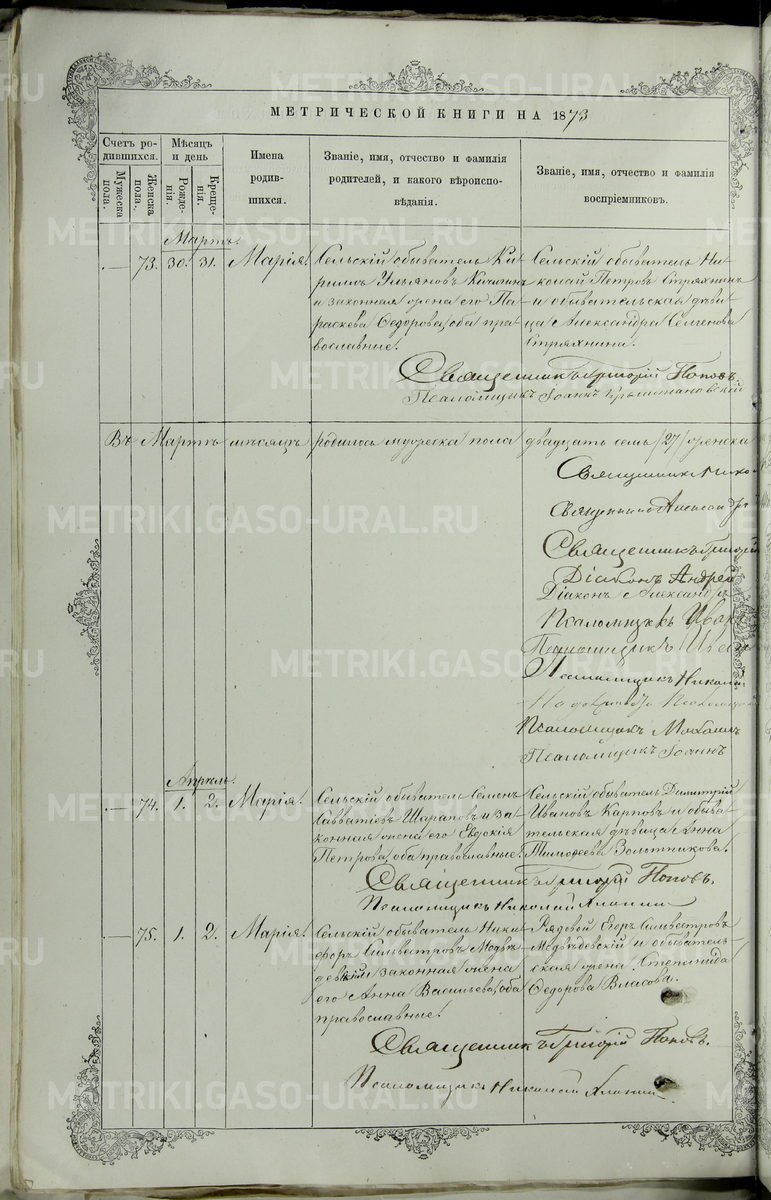 МЕТРИЧЕСКОЙ КНИГИ НА 1873
Счетъ ро-
дившихся.
Мужеска
пола.
Женска
пола.
Мѣсяцъ
и день
Рожде-
нія.
Креще-
нія.
Имена
родив-
шихся.
Званіе, имя, отчество и фамилія
родителей, и какого вѣроиспо-
вѣданія.
Званіе, имя, отчество и фамилія
воспріемниковъ.
Мартъ.
73. 30. 31. Марія.
Сельскій обыватель Ки-
риллъ Ульяновъ
и законная жена его Па-
раскева Ѳедорова, оба пра-
вославные.
Сельскій обыватель Ни-
колай Петровъ Стряхнинъ
и обывательская дѣви-
ца Александра Семенова
Стряхнина.
Священникъ Григорій Поповъ.
Псаломщикъ Іоаннъ
Въ Мартѣ мѣсяцѣ родилось мужеска пола двадцать семь /27/ женска
Священникъ Нико
Священникъ Александръ
Священникъ Григорій
Діаконъ Андрей
Діаконъ Александръ
Псаломщикъ Иван
Псаломщикъ
Псаломщикъ Никола
Псаломщикъ
Псаломщикъ Іоаннъ
Апрѣль.
74. 1. 2. Марія.
Сельскій обыватель Семенъ
Савватіевъ Шараповъ и за-
конная жена его Евдокія
Петрова, оба православные.
Сельскій обыватель Димитрій
Ивановъ Карповъ и обыва-
тельская дѣвица Анна
Тимоѳеева Золотникова.
Священникъ Григорій Поповъ.
Псаломщикъ Николай
75. 1. 2. Марія.
Сельскій обыватель Ники-
форъ Сильвестровъ Медвѣ-
девскій и законная жена
его Анна Васильева, оба
православные.
Рядовой Егоръ Сильвестровъ
Медвѣдевскій и обыватель-
ская жена Степанида
Ѳедорова Власова.
Священникъ Григорій Поповъ.
Псаломщикъ Николай
METRIKI.GASO-URAL.RU